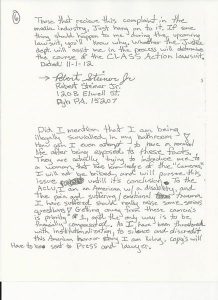 6
Those that recieve this complaint in the
media industry. Just hang on to it. If some
thing should happen to me during the upcoming
lawsuit, you'll know why. Whether the Justice
dept will assist me in the process will determine
the course of the CLASS Action lawsuit.
Dated: 11-1-12
Robert Steiner Jr
Robert Steiner Jr.
1208 Elwell St.
Pgh PA. 15207
Did I mention that I am being
illegally survailled, in my bathroom?
How can I even attempt to have a normal
life after being exposed to these tactics.
They are actually trying to introduce me to
a woman that has knowledge of the "cameras"
I will not be bribed, and will pursue this
issue until it's conclusion. To the
ACLU, I am an American w/a disability, and
the pain and suffering/emotional trauma
I have suffered should really raise some serious
questions? Getting away from these cameras is
priority #1, and the only way is to be
financially compensated. As I have been threatened
with institutionalization, to silence and discredit
this American horror story I am living. Copy's will
have to be sent to Press and lawyer.